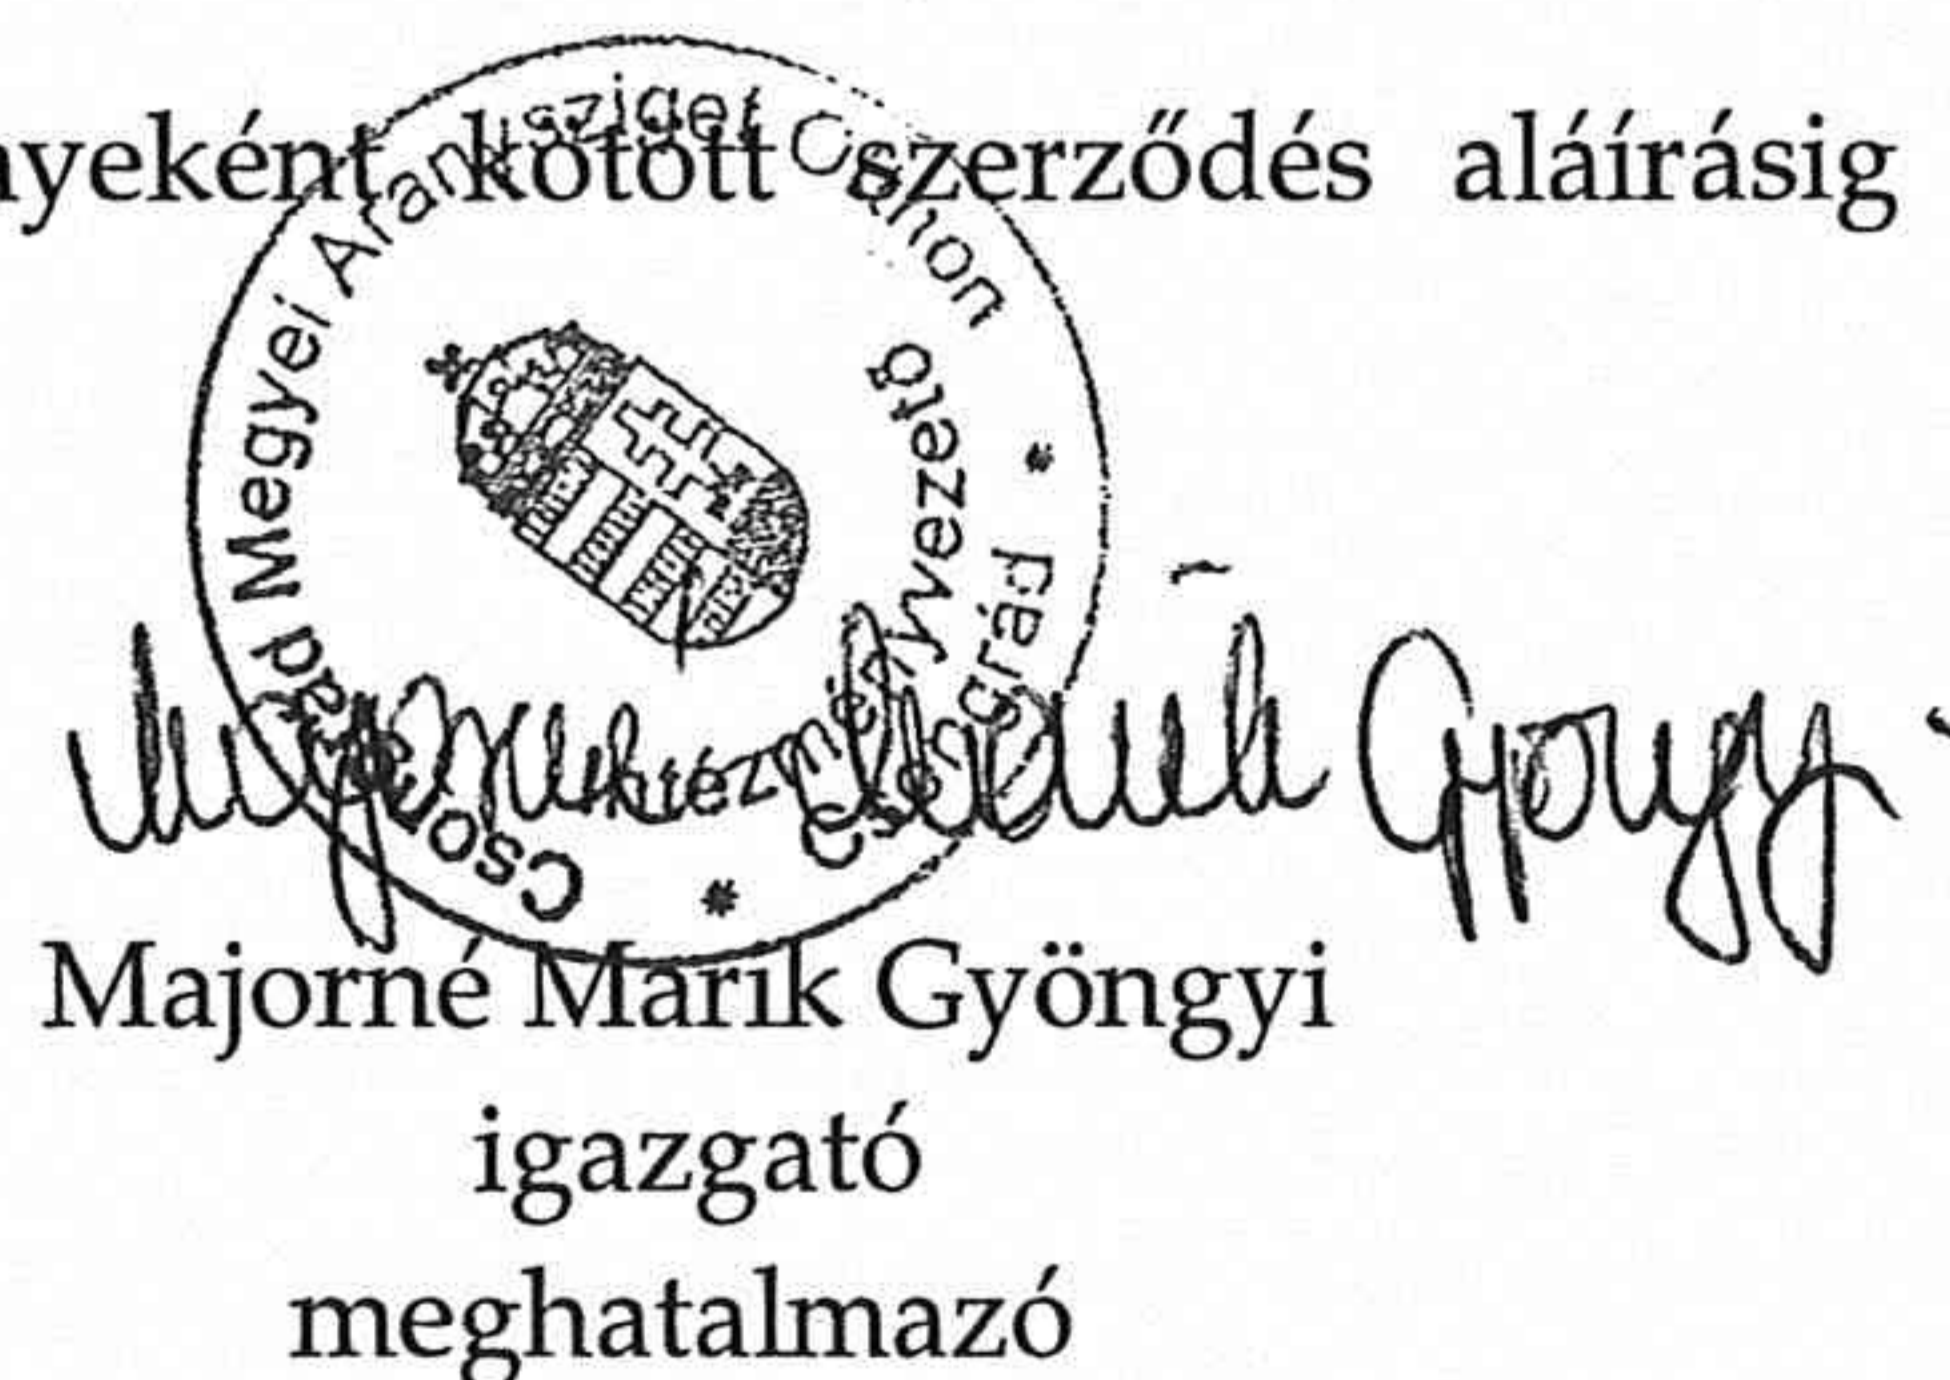 nyeként kötött szerződés aláírásig
Csongrád Megyei Aranysziget Otthon
* Csongrád *
Intézményvezető
Majorné Marik Gyöngyi
Majorné Marik Gyöngyi
igazgató
meghatalmazó